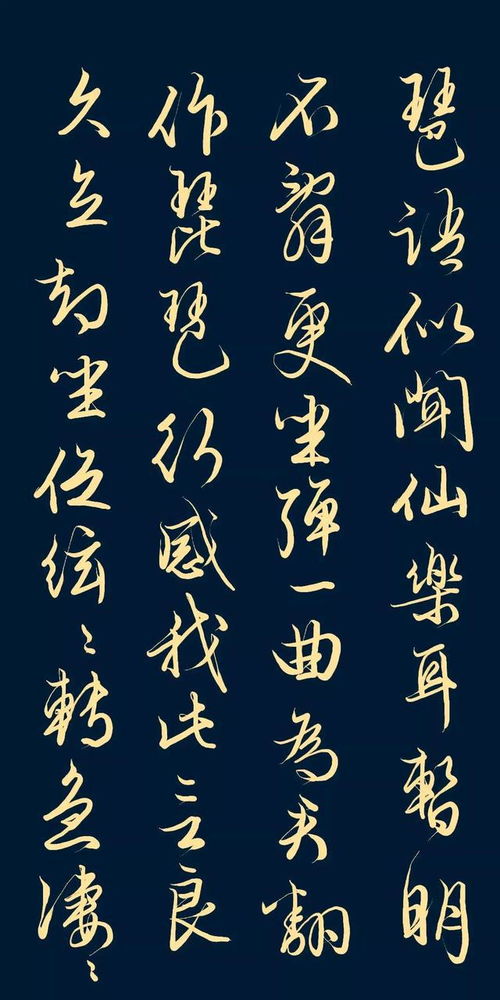 琶語似聞仙樂耳暫明
不辭更坐彈一曲為君翻
作琵琶行感我此言良
久立却坐促絃〻轉急凄〻